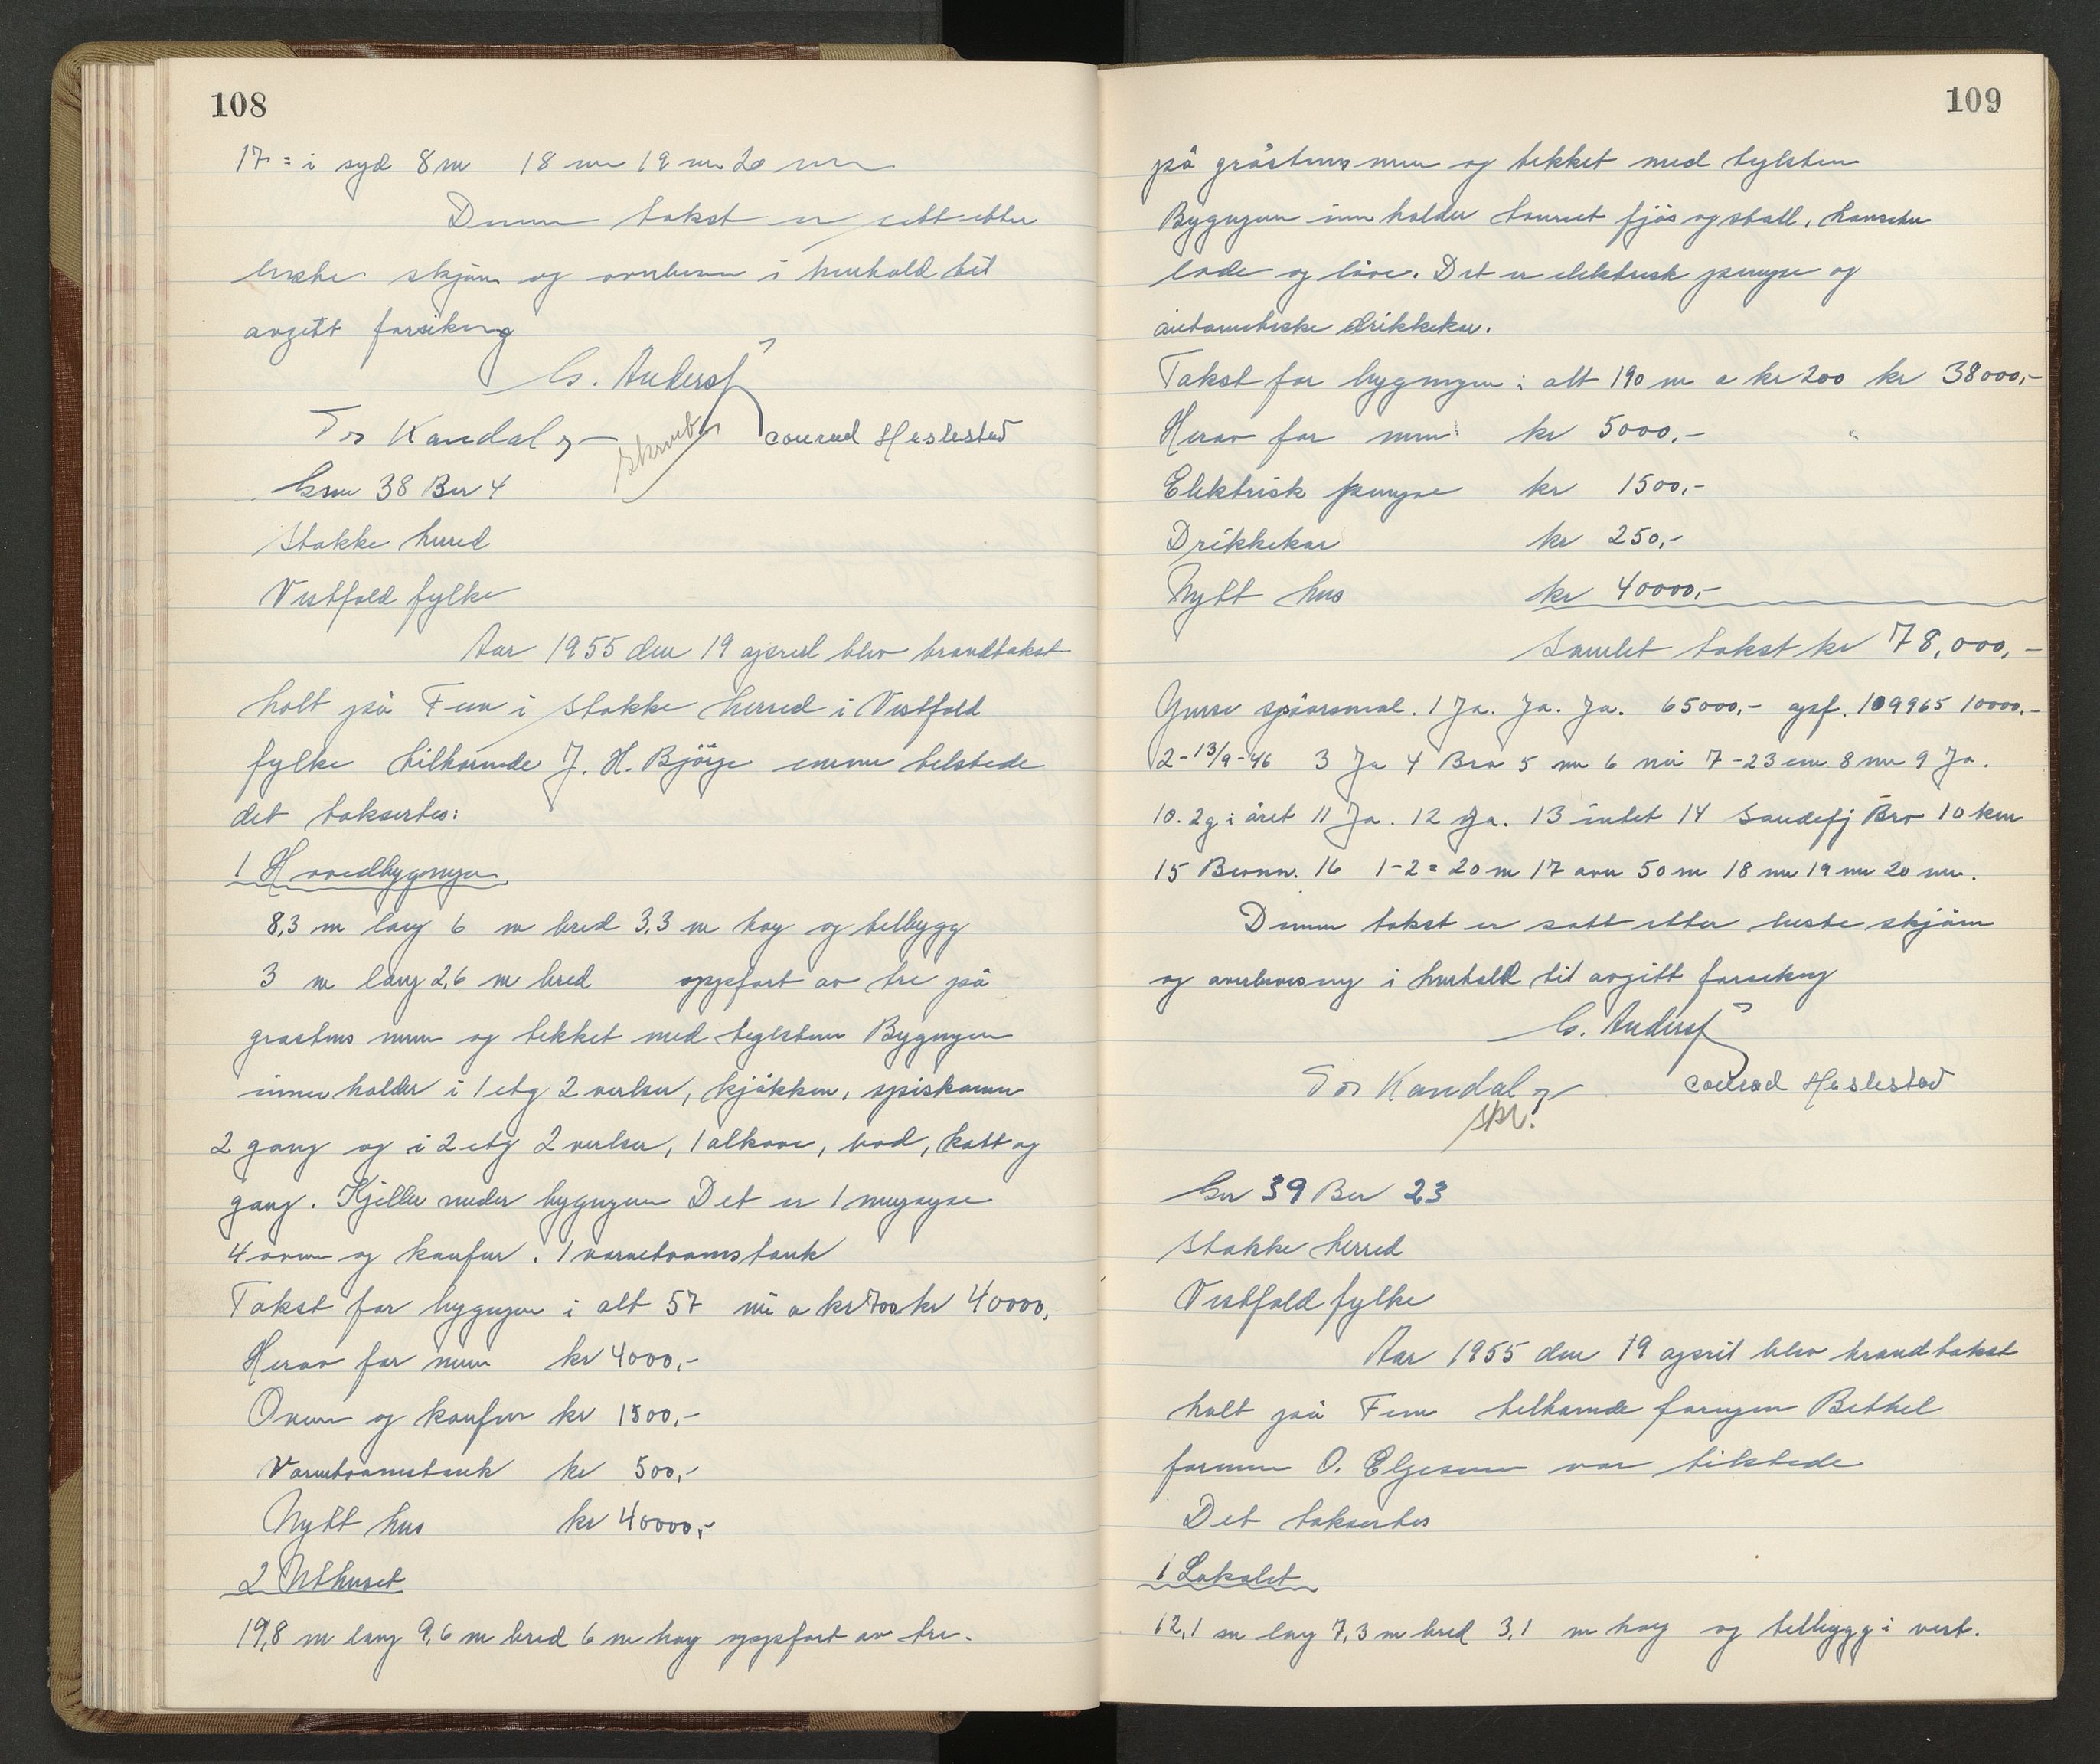 108
17 = i syd 8 m 18 nei 19 nei 20 nei
Denne takst er satt etter
beste skjønn og overbevisning i henhold til
avgitt forsikring
G. Anders
Tor Kandal Conrad Heslestad
Gnr 38 Bnr 4
Stokke herred
Vestfold fylke
Aar 1955 den 19 april blev brandtakst
holt på Fen i Stokke herred i Vestfold
fylke tilhørende J. H. Bjørge eneier tilstede
det taksertes:
1 Hovedbygningen
8,3 m lang 6 m bred 3,3 m høy og tilbygg
3 m lang 2,6 m bred oppført av tre på
gråstens mur og tekket med teglsten Bygningen
inneholder i 1 etg 2 verelser, kjøkken, spiskamer
2 gang og i 2 etg 2 verelser, 1 alkove, bod, kott og
gang. Kjeller under bygningen Det er 1 murpipe
4 ovner og komfur. 1 varmtvannstank
Takst for bygningen i alt 57 m a kr 700 kr 40000,
Herav for mur kr 4000,-
Ovner og komfur kr 1500,-
Varmtvannstank kr 500,-
Nytt hus kr 40000,-
2 Uthuset
19,8 m lang 9,6 m bred 6 m høy oppført av tre.
109
på gråstens mur og tekket med teglsten
Bygningen inneholder fjøs og stall, hønsehus
lade og låve. Det er elektrisk pumpe og
automatiske drikkekar.
Takst for bygningen i alt 190 m a kr 200 kr 38000,-
Herav for mur kr 5000,-
Elektrisk pumpe kr 1500,-
Drikkekar kr 250,-
Nytt hus kr 40000,-
Samlet takst kr 78,000,-
spørsmal. 1 Ja. Ja. Ja. 65000,- opf. 109965 10000,-
2 - 13/9 - 46 3 Ja 4 Bra 5 nei 6 nei 7 - 23 cm 8 nei 9 Ja.
10. 2 g i året 11 Ja. 12 Ja. 13 intet 14 Sandefj Brv 10 km
15 Brønn. 16 1-2 = 20 m 17 over 50 m 18 nei 19 nei 20 nei.
Denne takst er satt etter beste skjønn
og overbevisning i henhold til avgitt forsikring
G. Anders
Tor Kandal Conrad Heslestad
skr.
Gnr 39 Bnr 23
Stokke herred
Vestfold fylke
Aar 1955 den 19 april blev brandtakst
holt på Fen tilhørende foreningen Bethel
forman O. Elgesem var tilstede
Det taksertes
1 Lokalet
12,1 m lang 7,3 m bred 3,1 m høy og tilbygg i vest.